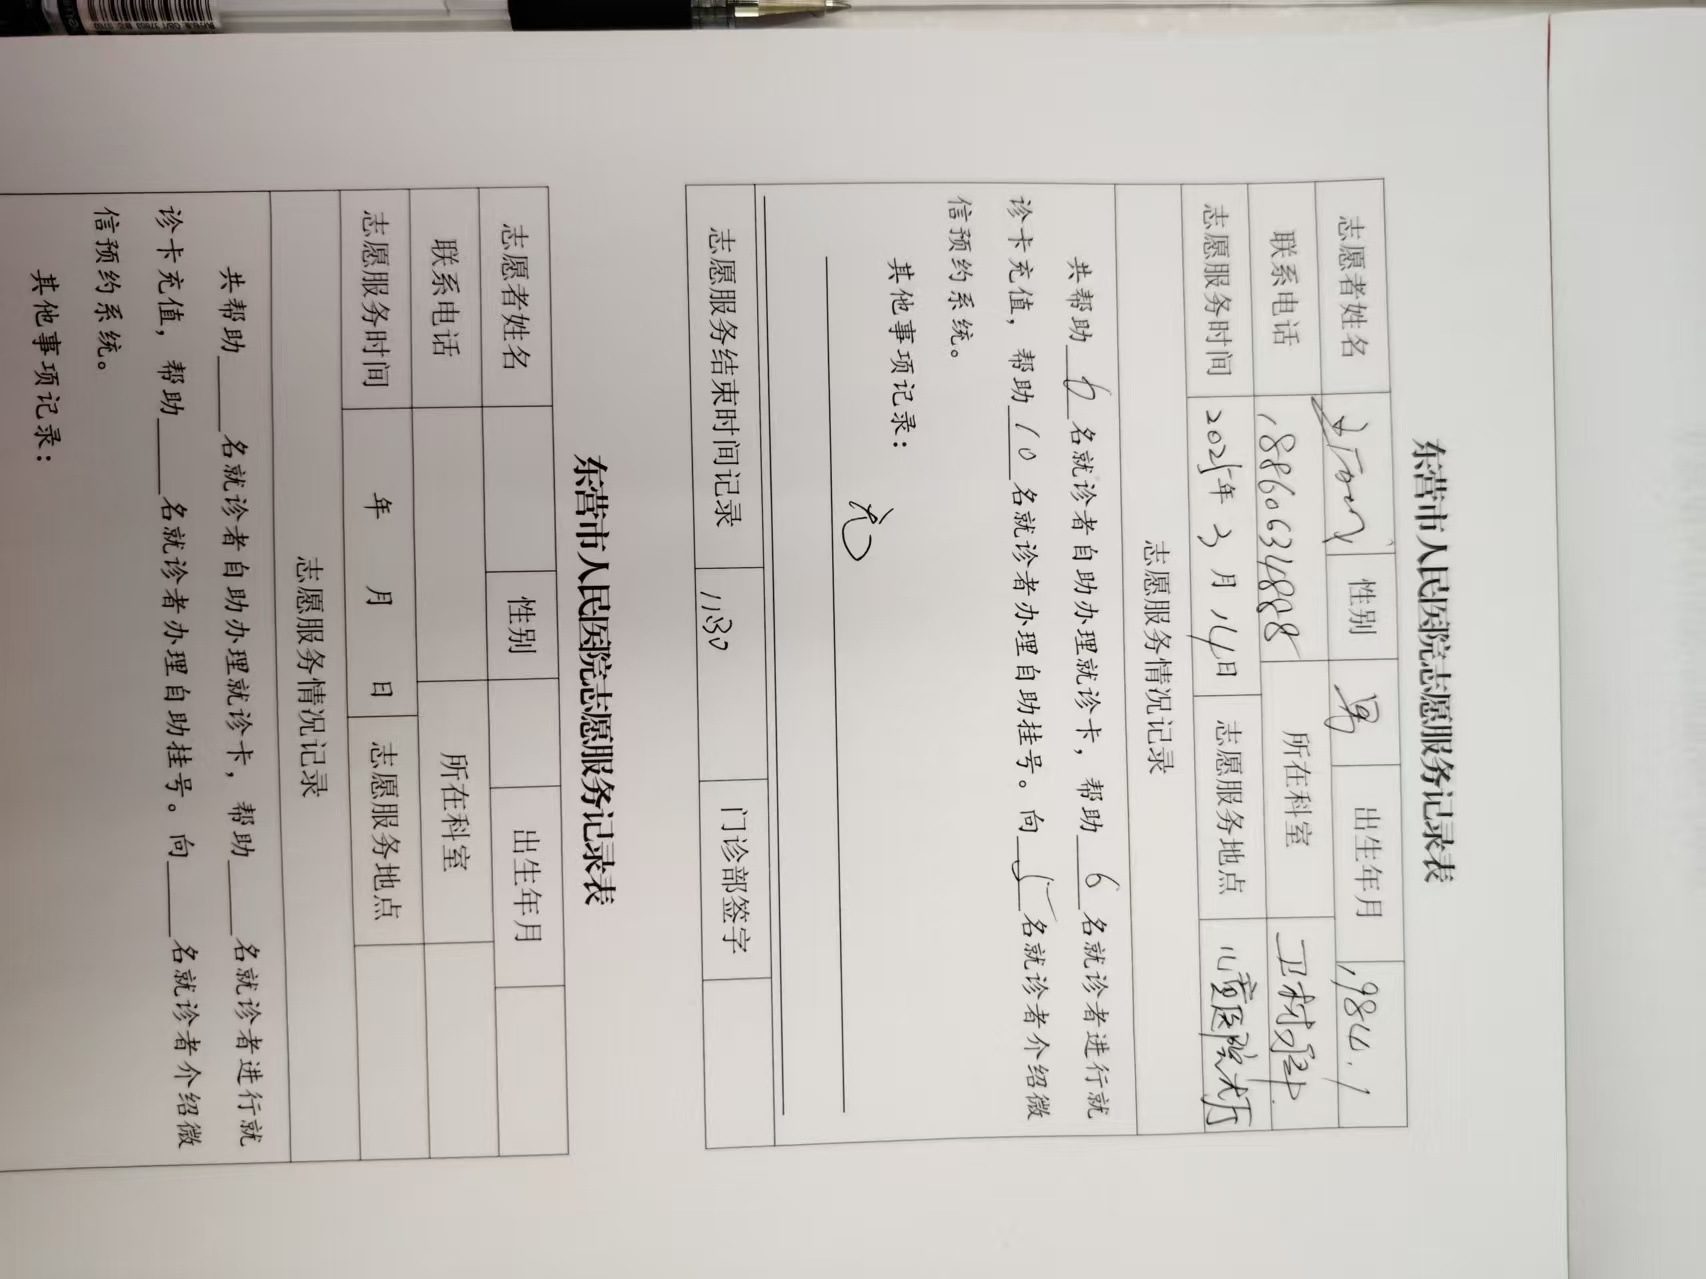 东营市人民医院志愿服务记录表
志愿者姓名 性别 男 出生年月 1984.1
联系电话 18860634888 所在科室 卫材科
志愿服务时间 2025年3月14日 志愿服务地点 儿童医院大厅
志愿服务情况记录
共帮助6名就诊者自助办理就诊卡，帮助6名就诊者进行就
诊卡充值，帮助10名就诊者办理自助挂号。向5名就诊者介绍微
信预约系统。
其他事项记录：
无
志愿服务结束时间记录 11:30 门诊部签字
东营市人民医院志愿服务记录表
志愿者姓名 性别 出生年月
联系电话 所在科室
志愿服务时间 年 月 日 志愿服务地点
志愿服务情况记录
共帮助____名就诊者自助办理就诊卡，帮助____名就诊者进行就
诊卡充值，帮助____名就诊者办理自助挂号。向____名就诊者介绍微
信预约系统。
其他事项记录：